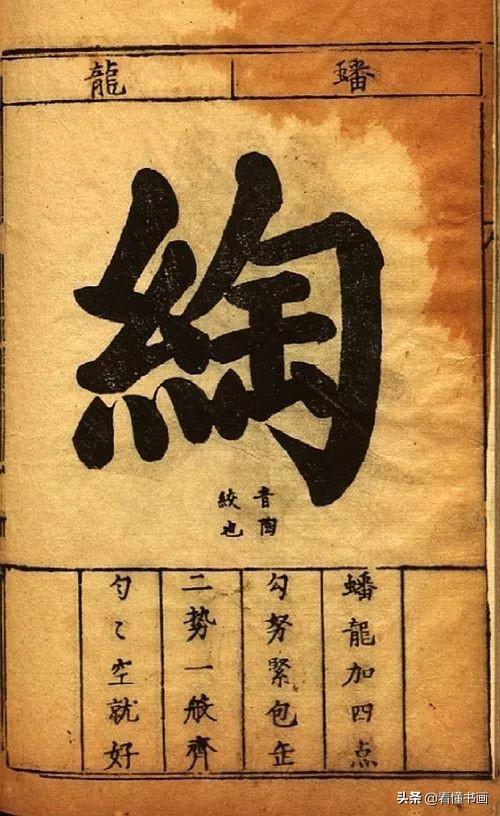 蟠龍
綯
音陶
絞也
蟠龍加四点
勾努緊包缶
二勢一般齊
勻〻空就好
头条 @看懂书画